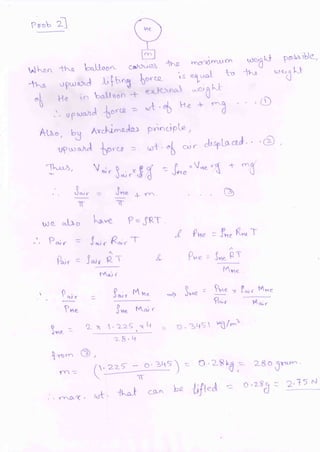 Poob 2]
He
m
When the balloon carries the maximum weight possible,
the upward lifting force is equal to the weight
of He in balloon + external weight
∴ upward force = wt. of He + mg ... ①
Also, by Archimedes principle,
upward force = wt. of air displaced... ②
Thus, Vair ρair × g = ρHe × VHe × g + mg
∴ ρair/π = ρHe/π + m ... ③
we also have P = ρRT.
∴ Pair = ρair Rair T & PHe = ρHe RHe T
Pair = ρair R̂ T / Mair & PHe = ρHe R̂ T / MHe
∴ Pair / PHe = ρair MHe / ρHe Mair ⇒ ρHe = PHe × ρair MHe / Pair Mair
ρHe = 2 × 1.225 × 4 / 28.4 = 0.3451 kg/m³
from ③,
m = (1.225 - 0.345 / π) = 0.28kg = 280 gram.
∴ max. wt. that can be lifted = 0.28g = 2.75 N